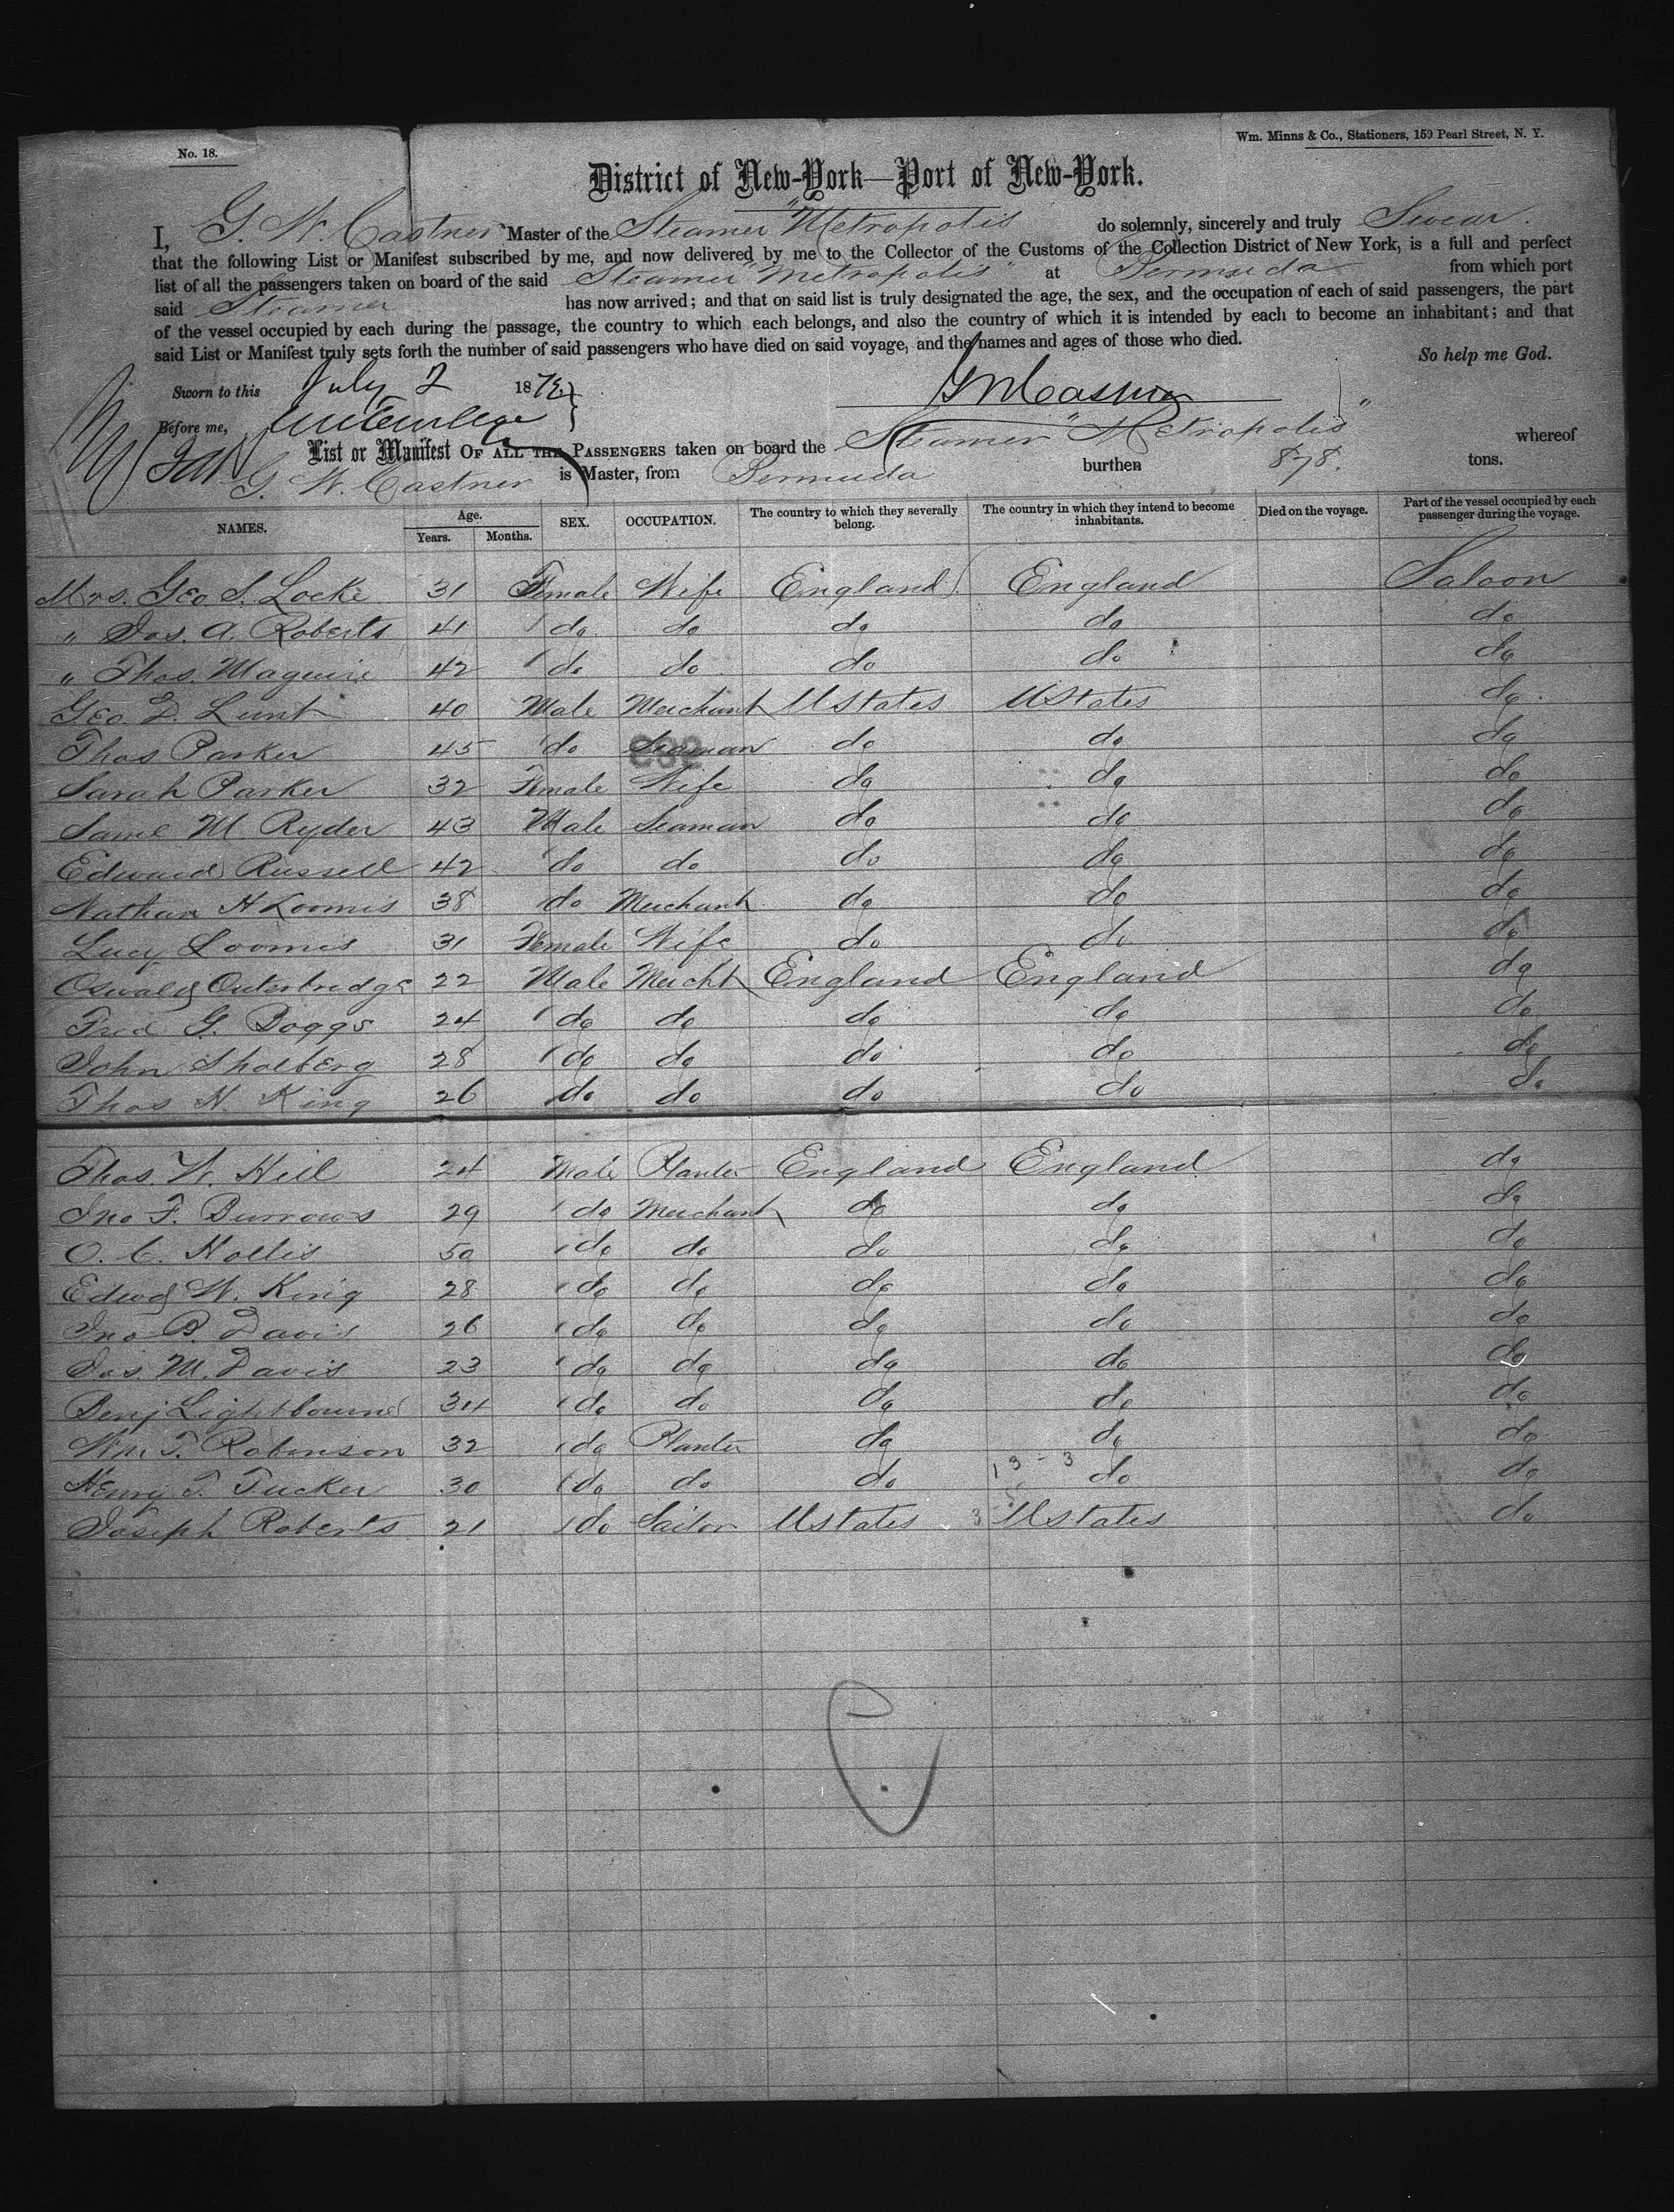 No. 18.
Wm. Minns & Co., Stationers, 159 Pearl Street, N. Y.
District of New-York—Port of New-York.
I, G. W. Castner Master of the Steamer "Metropolis do solemnly, sincerely and truly Swear.
that the following List or Manifest subscribed by me, and now delivered by me to the Collector of the Customs of the Collection District of New York, is a full and perfect
list of all the passengers taken on board of the said Steamer "Metropolis" at Bermuda from which port
said Steamer has now arrived; and that on said list is truly designated the age, the sex, and the occupation of each of said passengers, the part
of the vessel occupied by each during the passage, the country to which each belongs, and also the country of which it is intended by each to become an inhabitant; and that
said List or Manifest truly sets forth the number of said passengers who have died on said voyage, and the names and ages of those who died.
So help me God.
Sworn to this July 2 187
Before me,
List or Manifest OF ALL THE PASSENGERS taken on board the Steamer "Metropolis" whereof
G. W. Castner is Master, from Bermuda burthen 878. tons.
NAMES. Age. Years. Months. SEX. OCCUPATION. The country to which they severally belong. The country in which they intend to become inhabitants. Died on the voyage. Part of the vessel occupied by each passenger during the voyage.
Mrs. Geo S. Locke 31 Female Wife England England Saloon
" Jos. A. Roberts 41 do do do do do
" Thos. Maguire 42 do do do do do
Geo. D. Lunt 40 Male Merchant UStates UStates do
Thos Parker 45 do Seaman do do do
Sarah Parker 32 Female Wife do do do
Saml M. Ryder 43 Male Seaman do do do
Edward Russell 42 do do do do do
Nathan H Loomis 38 do Merchant do do do
Lucy Loomis 31 Female Wife do do do
Oswald Outerbridge 22 Male Mercht England England do
Fred G. Boggs 24 do do do do do
John Sholberg 28 do do do do do
Thos N. King 26 do do do do do
Thos. W. Hill 24 Male Planter England England do
Jno F. Burrows 29 do Merchant do do do
O. C. Hollis 50 do do do do do
Edwd W. King 28 do do do do do
Jno B. Davis 26 do do do do do
Jos M. Davis 23 do do do do do
Benj Lightbourne 34 do do do do do
Wm. T. Robinson 32 do Planter do do do
Henry T. Tucker 30 do do do do do
13 - 3
Joseph Roberts 21 do Sailor UStates 3 UStates do